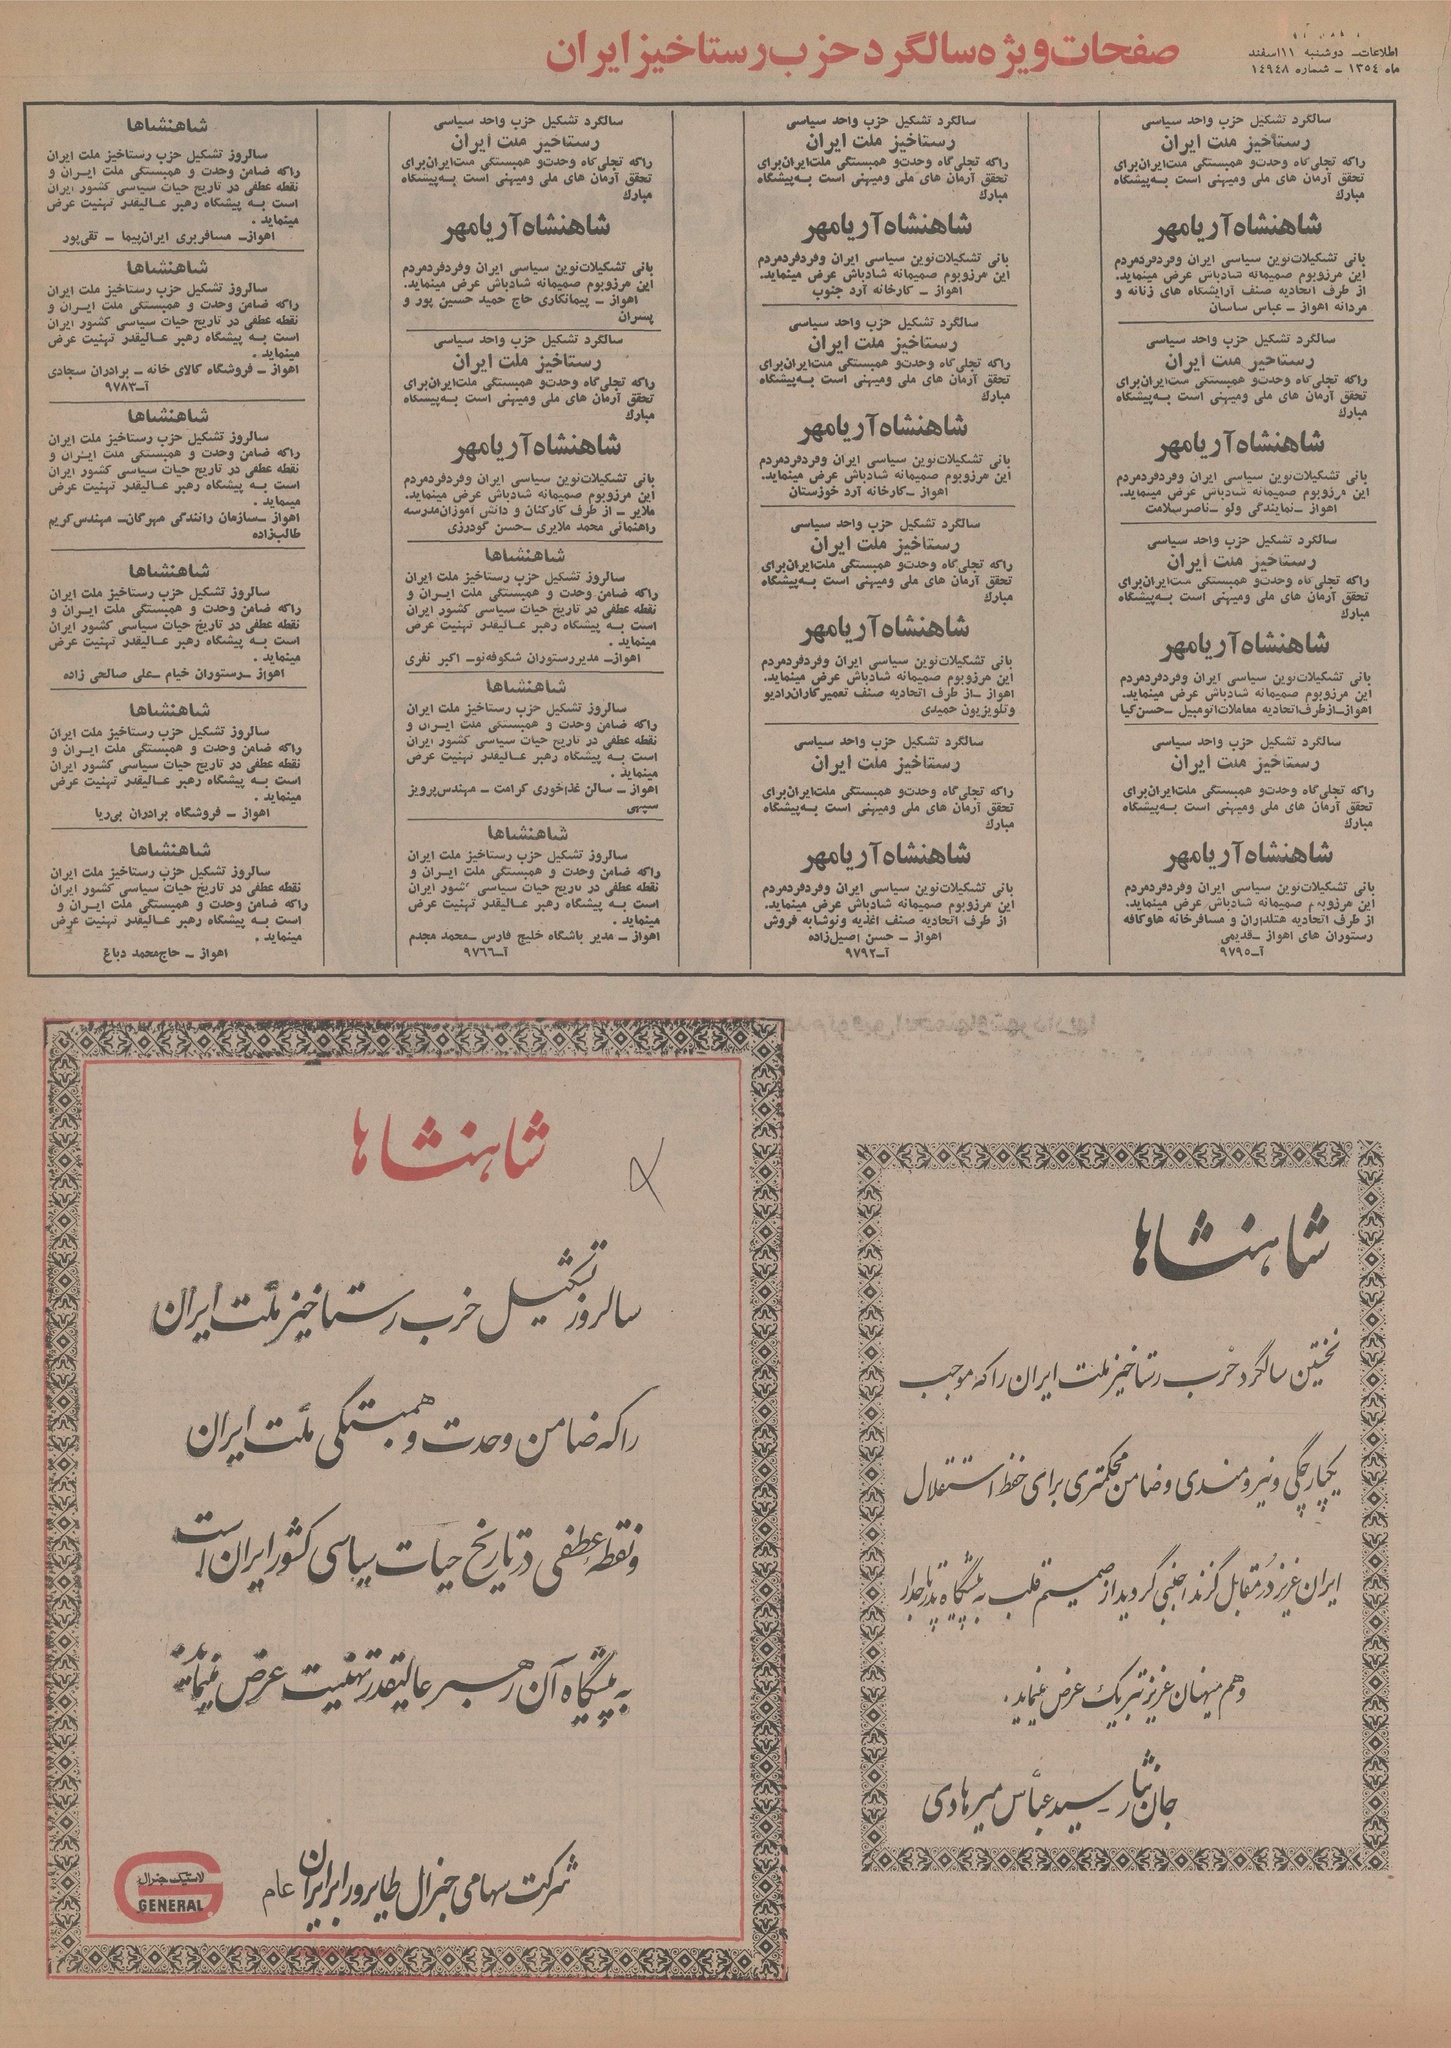 اطلاعات ـ دوشنبه ۱۱ اسفند
ماه ۱۳۵۴ ـ شماره ۱۴۹۴۸
صفحات ویژه سالگرد حزب رستاخیز ایران
سالگرد تشکیل حزب واحد سیاسی
رستاخیز ملت ایران
راکه تجلی گاه وحدت و همبستگی ملت ایران برای
تحقق آرمان های ملی و میهنی است به پیشگاه
مبارك
شاهنشاه آریامهر
بانی تشکیلات نوین سیاسی ایران و فرد فرد مردم
این مرزوبوم صمیمانه شادباش عرض مینماید.
از طرف اتحادیه صنف آرایشگاه های زنانه و
مردانه اهواز ـ عباس ساسان
سالگرد تشکیل حزب واحد سیاسی
رستاخیز ملت ایران
راکه تجلی گاه وحدت و همبستگی ملت ایران برای
تحقق آرمان های ملی و میهنی است به پیشگاه
مبارك
شاهنشاه آریامهر
بانی تشکیلات نوین سیاسی ایران و فرد فرد مردم
این مرزوبوم صمیمانه شادباش عرض مینماید.
اهواز ـ نمایندگی ولو ـ ناصر سلامت
سالگرد تشکیل حزب واحد سیاسی
رستاخیز ملت ایران
راکه تجلی گاه وحدت و همبستگی ملت ایران برای
تحقق آرمان های ملی و میهنی است به پیشگاه
مبارك
شاهنشاه آریامهر
بانی تشکیلات نوین سیاسی ایران و فرد فرد مردم
این مرزوبوم صمیمانه شادباش عرض مینماید.
اهواز ـ از طرف اتحادیه معاملات اتومبیل ـ حسن کیا
سالگرد تشکیل حزب واحد سیاسی
رستاخیز ملت ایران
راکه تجلی گاه وحدت و همبستگی ملت ایران برای
تحقق آرمان های ملی و میهنی است به پیشگاه
مبارك
شاهنشاه آریامهر
بانی تشکیلات نوین سیاسی ایران و فرد فرد مردم
این مرزوبوم صمیمانه شادباش عرض مینماید.
از طرف اتحادیه هتلداران و مسافرخانه ها و کافه
رستوران های اهواز ـ قدیمی
آ ـ ۹۷۹۵
سالگرد تشکیل حزب واحد سیاسی
رستاخیز ملت ایران
راکه تجلی گاه وحدت و همبستگی ملت ایران برای
تحقق آرمان های ملی و میهنی است به پیشگاه
مبارك
شاهنشاه آریامهر
بانی تشکیلات نوین سیاسی ایران و فرد فرد مردم
این مرزوبوم صمیمانه شادباش عرض مینماید.
اهواز ـ کارخانه آرد جنوب
سالگرد تشکیل حزب واحد سیاسی
رستاخیز ملت ایران
راکه تجلی گاه وحدت و همبستگی ملت ایران برای
تحقق آرمان های ملی و میهنی است به پیشگاه
مبارك
شاهنشاه آریامهر
بانی تشکیلات نوین سیاسی ایران و فرد فرد مردم
این مرزوبوم صمیمانه شادباش عرض مینماید.
اهواز ـ کارخانه آرد خوزستان
سالگرد تشکیل حزب واحد سیاسی
رستاخیز ملت ایران
راکه تجلی گاه وحدت و همبستگی ملت ایران برای
تحقق آرمان های ملی و میهنی است به پیشگاه
مبارك
شاهنشاه آریامهر
بانی تشکیلات نوین سیاسی ایران و فرد فرد مردم
این مرزوبوم صمیمانه شادباش عرض مینماید.
اهواز ـ از طرف اتحادیه صنف تعمیرکاران رادیو
و تلویزیون حمیدی
سالگرد تشکیل حزب واحد سیاسی
رستاخیز ملت ایران
راکه تجلی گاه وحدت و همبستگی ملت ایران برای
تحقق آرمان های ملی و میهنی است به پیشگاه
مبارك
شاهنشاه آریامهر
بانی تشکیلات نوین سیاسی ایران و فرد فرد مردم
این مرزوبوم صمیمانه شادباش عرض مینماید.
از طرف اتحادیه صنف اغذیه و نوشابه فروش
اهواز ـ حسن اصیل زاده
آ ـ ۹۷۹۲
سالگرد تشکیل حزب واحد سیاسی
رستاخیز ملت ایران
راکه تجلی گاه وحدت و همبستگی ملت ایران برای
تحقق آرمان های ملی و میهنی است به پیشگاه
مبارك
شاهنشاه آریامهر
بانی تشکیلات نوین سیاسی ایران و فرد فرد مردم
این مرزوبوم صمیمانه شادباش عرض مینماید.
اهواز ـ پیمانکاری حاج حمید حسین پور و
پسران
سالگرد تشکیل حزب واحد سیاسی
رستاخیز ملت ایران
راکه تجلی گاه وحدت و همبستگی ملت ایران برای
تحقق آرمان های ملی و میهنی است به پیشگاه
مبارك
شاهنشاه آریامهر
بانی تشکیلات نوین سیاسی ایران و فرد فرد مردم
این مرزوبوم صمیمانه شادباش عرض مینماید.
ملایر ـ از طرف کارکنان و دانش آموزان مدرسه
راهنمائی محمد ملایری ـ حسن گودرزی
شاهنشاها
سالروز تشکیل حزب رستاخیز ملت ایران
راکه ضامن وحدت و همبستگی ملت ایران و
نقطه عطفی در تاریخ حیات سیاسی کشور ایران
است به پیشگاه رهبر عالیقدر تهنیت عرض
مینماید.
اهواز ـ مدیر رستوران شکوفه نو ـ اکبر نفری
شاهنشاها
سالروز تشکیل حزب رستاخیز ملت ایران
راکه ضامن وحدت و همبستگی ملت ایران و
نقطه عطفی در تاریخ حیات سیاسی کشور ایران
است به پیشگاه رهبر عالیقدر تهنیت عرض
مینماید.
اهواز ـ سالن غذاخوری کرامت ـ مهندس پرویز
سپهی
شاهنشاها
سالروز تشکیل حزب رستاخیز ملت ایران
راکه ضامن وحدت و همبستگی ملت ایران و
نقطه عطفی در تاریخ حیات سیاسی کشور ایران
است به پیشگاه رهبر عالیقدر تهنیت عرض
مینماید.
اهواز ـ مدیر باشگاه خلیج فارس ـ محمد مجدم
آ ـ ۹۷۶۶
شاهنشاها
سالروز تشکیل حزب رستاخیز ملت ایران
راکه ضامن وحدت و همبستگی ملت ایران و
نقطه عطفی در تاریخ حیات سیاسی کشور ایران
است به پیشگاه رهبر عالیقدر تهنیت عرض
مینماید.
اهواز ـ مسافربری ایران پیما ـ تقی پور
شاهنشاها
سالروز تشکیل حزب رستاخیز ملت ایران
راکه ضامن وحدت و همبستگی ملت ایران و
نقطه عطفی در تاریخ حیات سیاسی کشور ایران
است به پیشگاه رهبر عالیقدر تهنیت عرض
مینماید.
اهواز ـ فروشگاه کالای خانه ـ برادران سجادی
آ ـ ۹۷۸۳
شاهنشاها
سالروز تشکیل حزب رستاخیز ملت ایران
راکه ضامن وحدت و همبستگی ملت ایران و
نقطه عطفی در تاریخ حیات سیاسی کشور ایران
است به پیشگاه رهبر عالیقدر تهنیت عرض
مینماید.
اهواز ـ سازمان رانندگی مهرگان ـ مهندس کریم
طالب زاده
شاهنشاها
سالروز تشکیل حزب رستاخیز ملت ایران
راکه ضامن وحدت و همبستگی ملت ایران و
نقطه عطفی در تاریخ حیات سیاسی کشور ایران
است به پیشگاه رهبر عالیقدر تهنیت عرض
مینماید.
اهواز ـ رستوران خیام ـ علی صالحی زاده
شاهنشاها
سالروز تشکیل حزب رستاخیز ملت ایران
راکه ضامن وحدت و همبستگی ملت ایران و
نقطه عطفی در تاریخ حیات سیاسی کشور ایران
است به پیشگاه رهبر عالیقدر تهنیت عرض
مینماید.
اهواز ـ فروشگاه برادران بی ریا
شاهنشاها
سالروز تشکیل حزب رستاخیز ملت ایران
نقطه عطفی در تاریخ حیات سیاسی کشور ایران
راکه ضامن وحدت و همبستگی ملت ایران و
است به پیشگاه رهبر عالیقدر تهنیت عرض
مینماید.
اهواز ـ حاج محمد دباغ
شاهنشاها
نخستین سالگرد حزب رستاخیز ملت ایران را که موجب
یکپارچگی و نیرومندی و ضامن محکمتری برای حفظ استقلال
ایران عزیز در مقابل گزند اجنبی گردید از صمیم قلب به پیشگاه پدر تاجدار
و هم میهنان عزیز تبریک عرض مینماید.
جان نثار ـ سید عباس میرهادی
شاهنشاها
سالروز تشکیل حزب رستاخیز ملت ایران
را که ضامن وحدت و همبستگی ملت ایران
و نقطه عطفی در تاریخ حیات سیاسی کشور ایران است
به پیشگاه آن رهبر عالیقدر تهنیت عرض مینماید.
شرکت سهامی جنرال طایر و رابر ایران عام
لاستیک جنرال
GENERAL